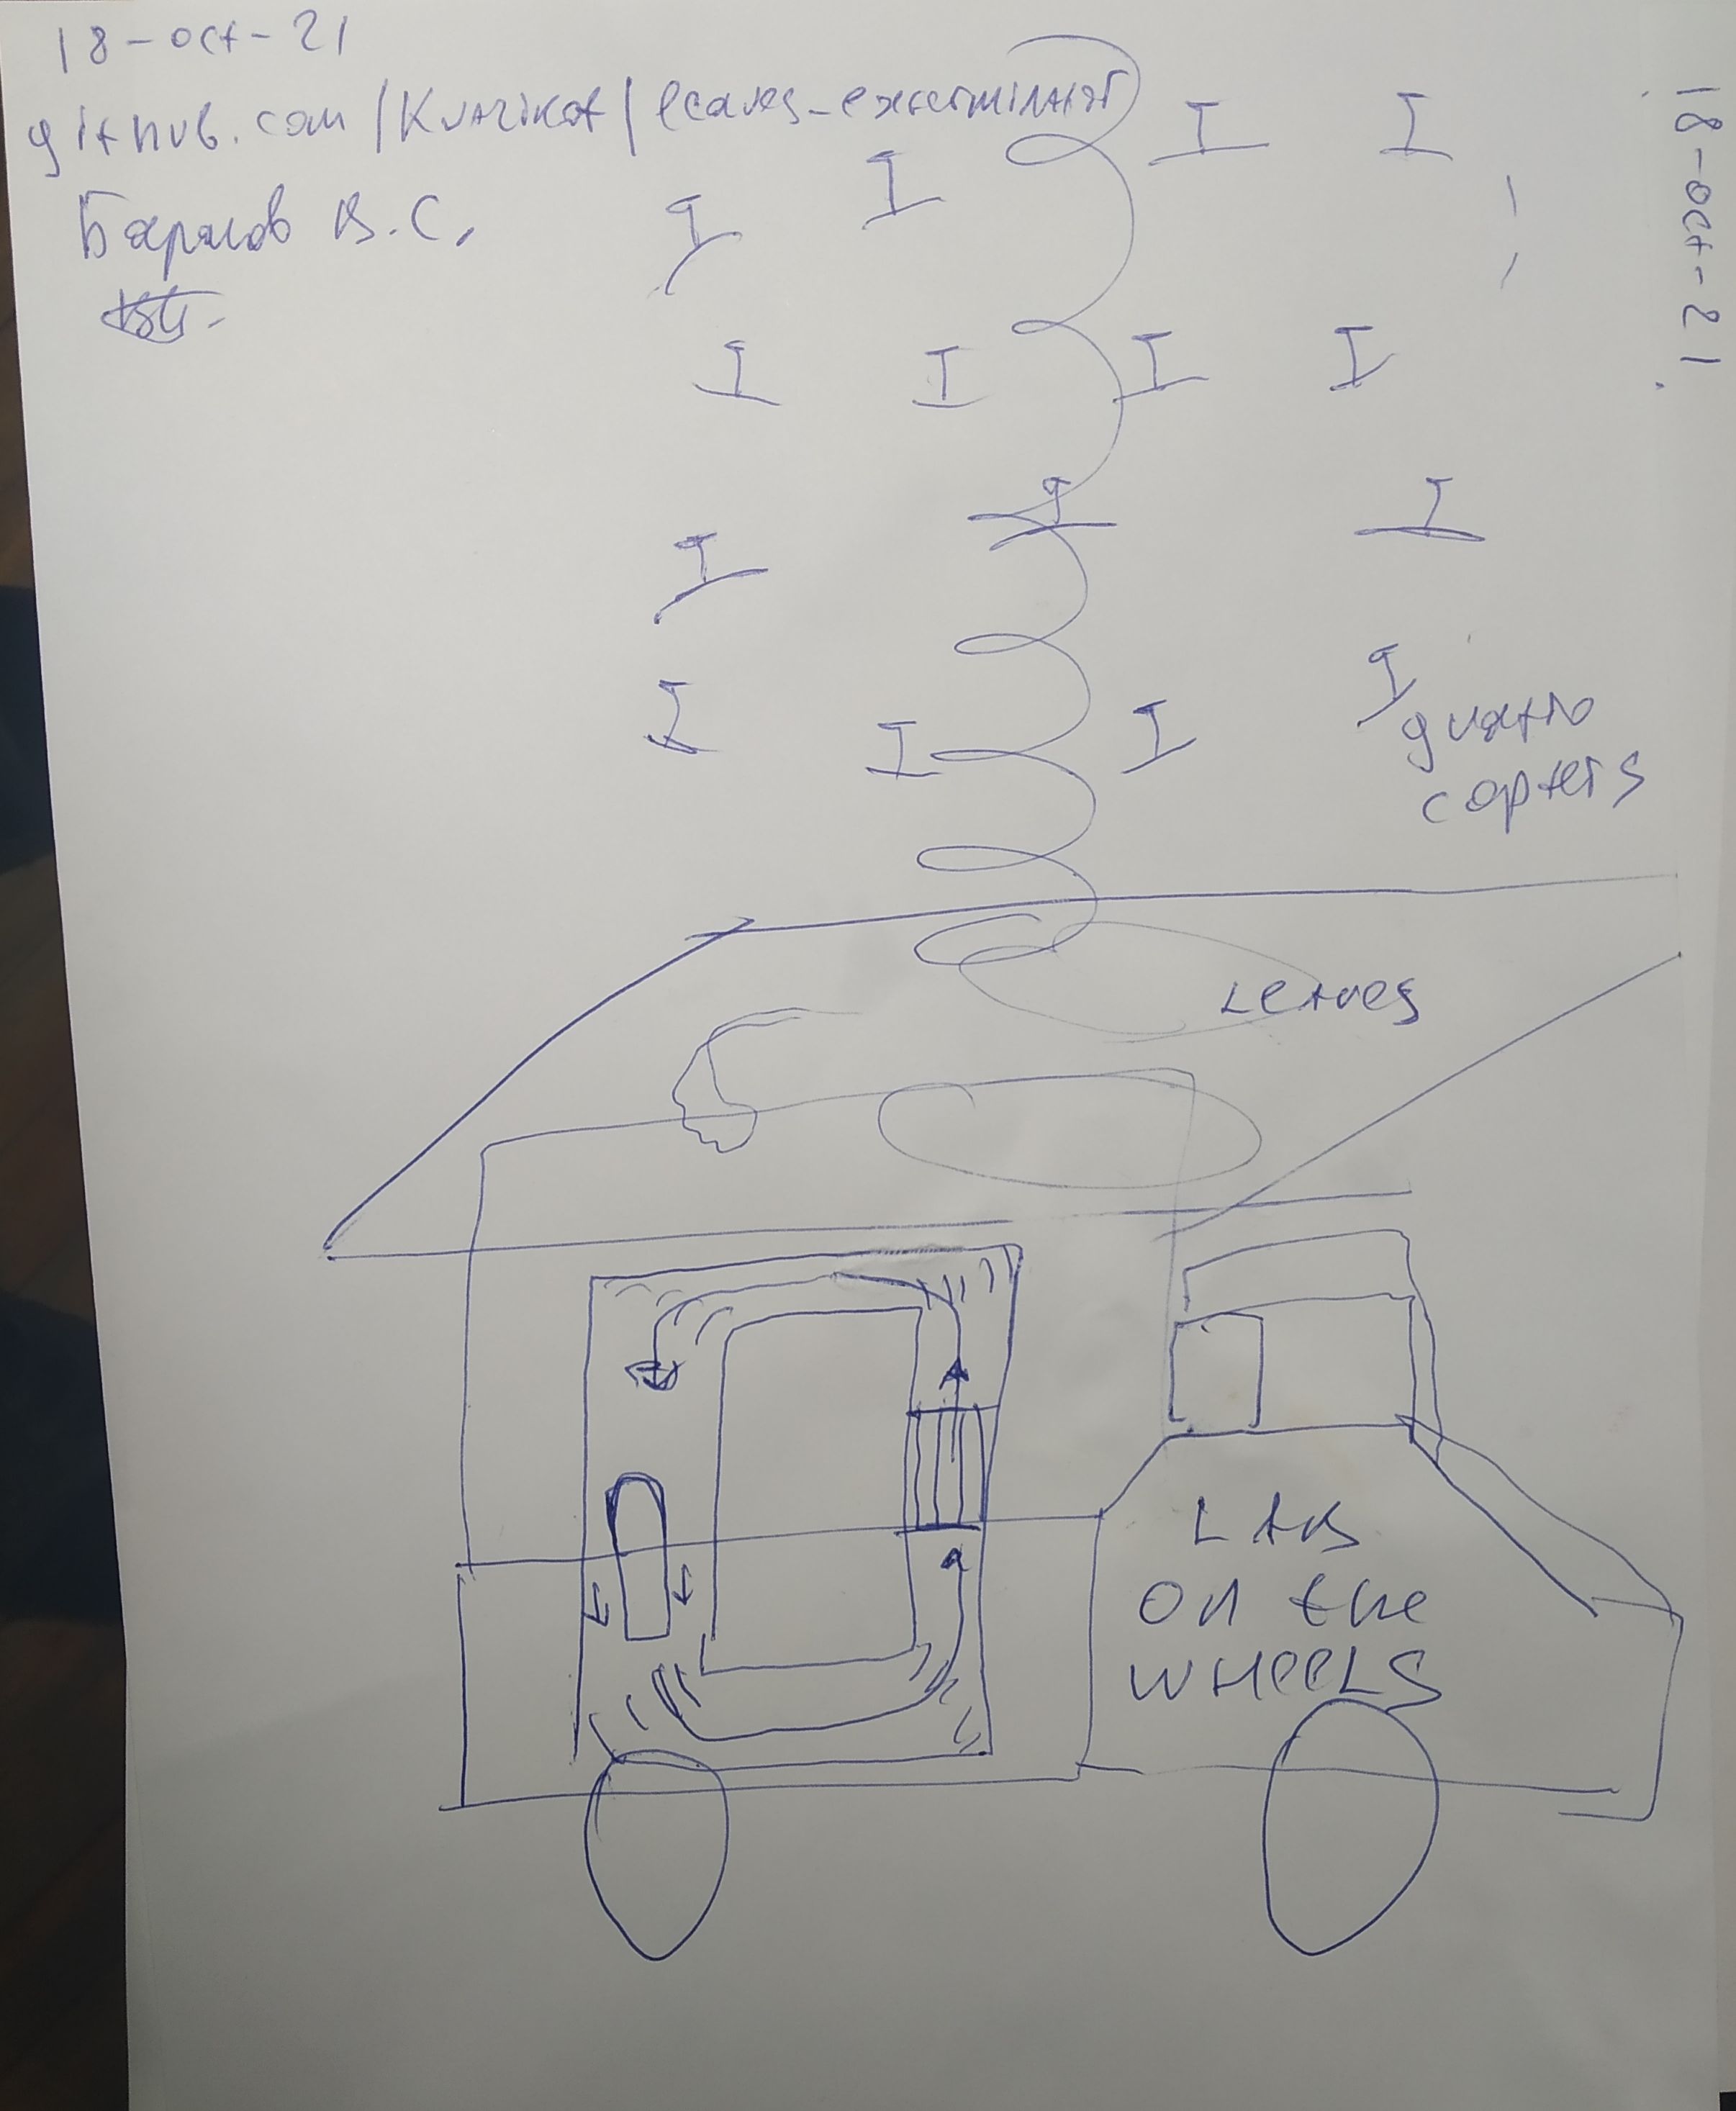 18-oct-21
github.com/Kvazikot/leaves-exterminator
В.С.
18-oct-21
quatro
copters
Leaves
LAB
On the
WHeeLS